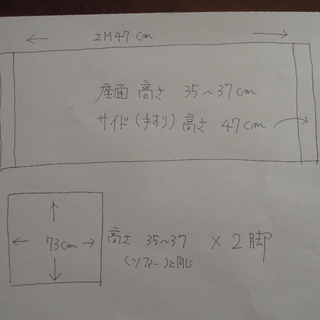 2M47cm
座面 高さ 35~37cm
サイド(手すり) 高さ 47cm
73cm
高さ 35~37 × 2脚
(ソファーと同じ)